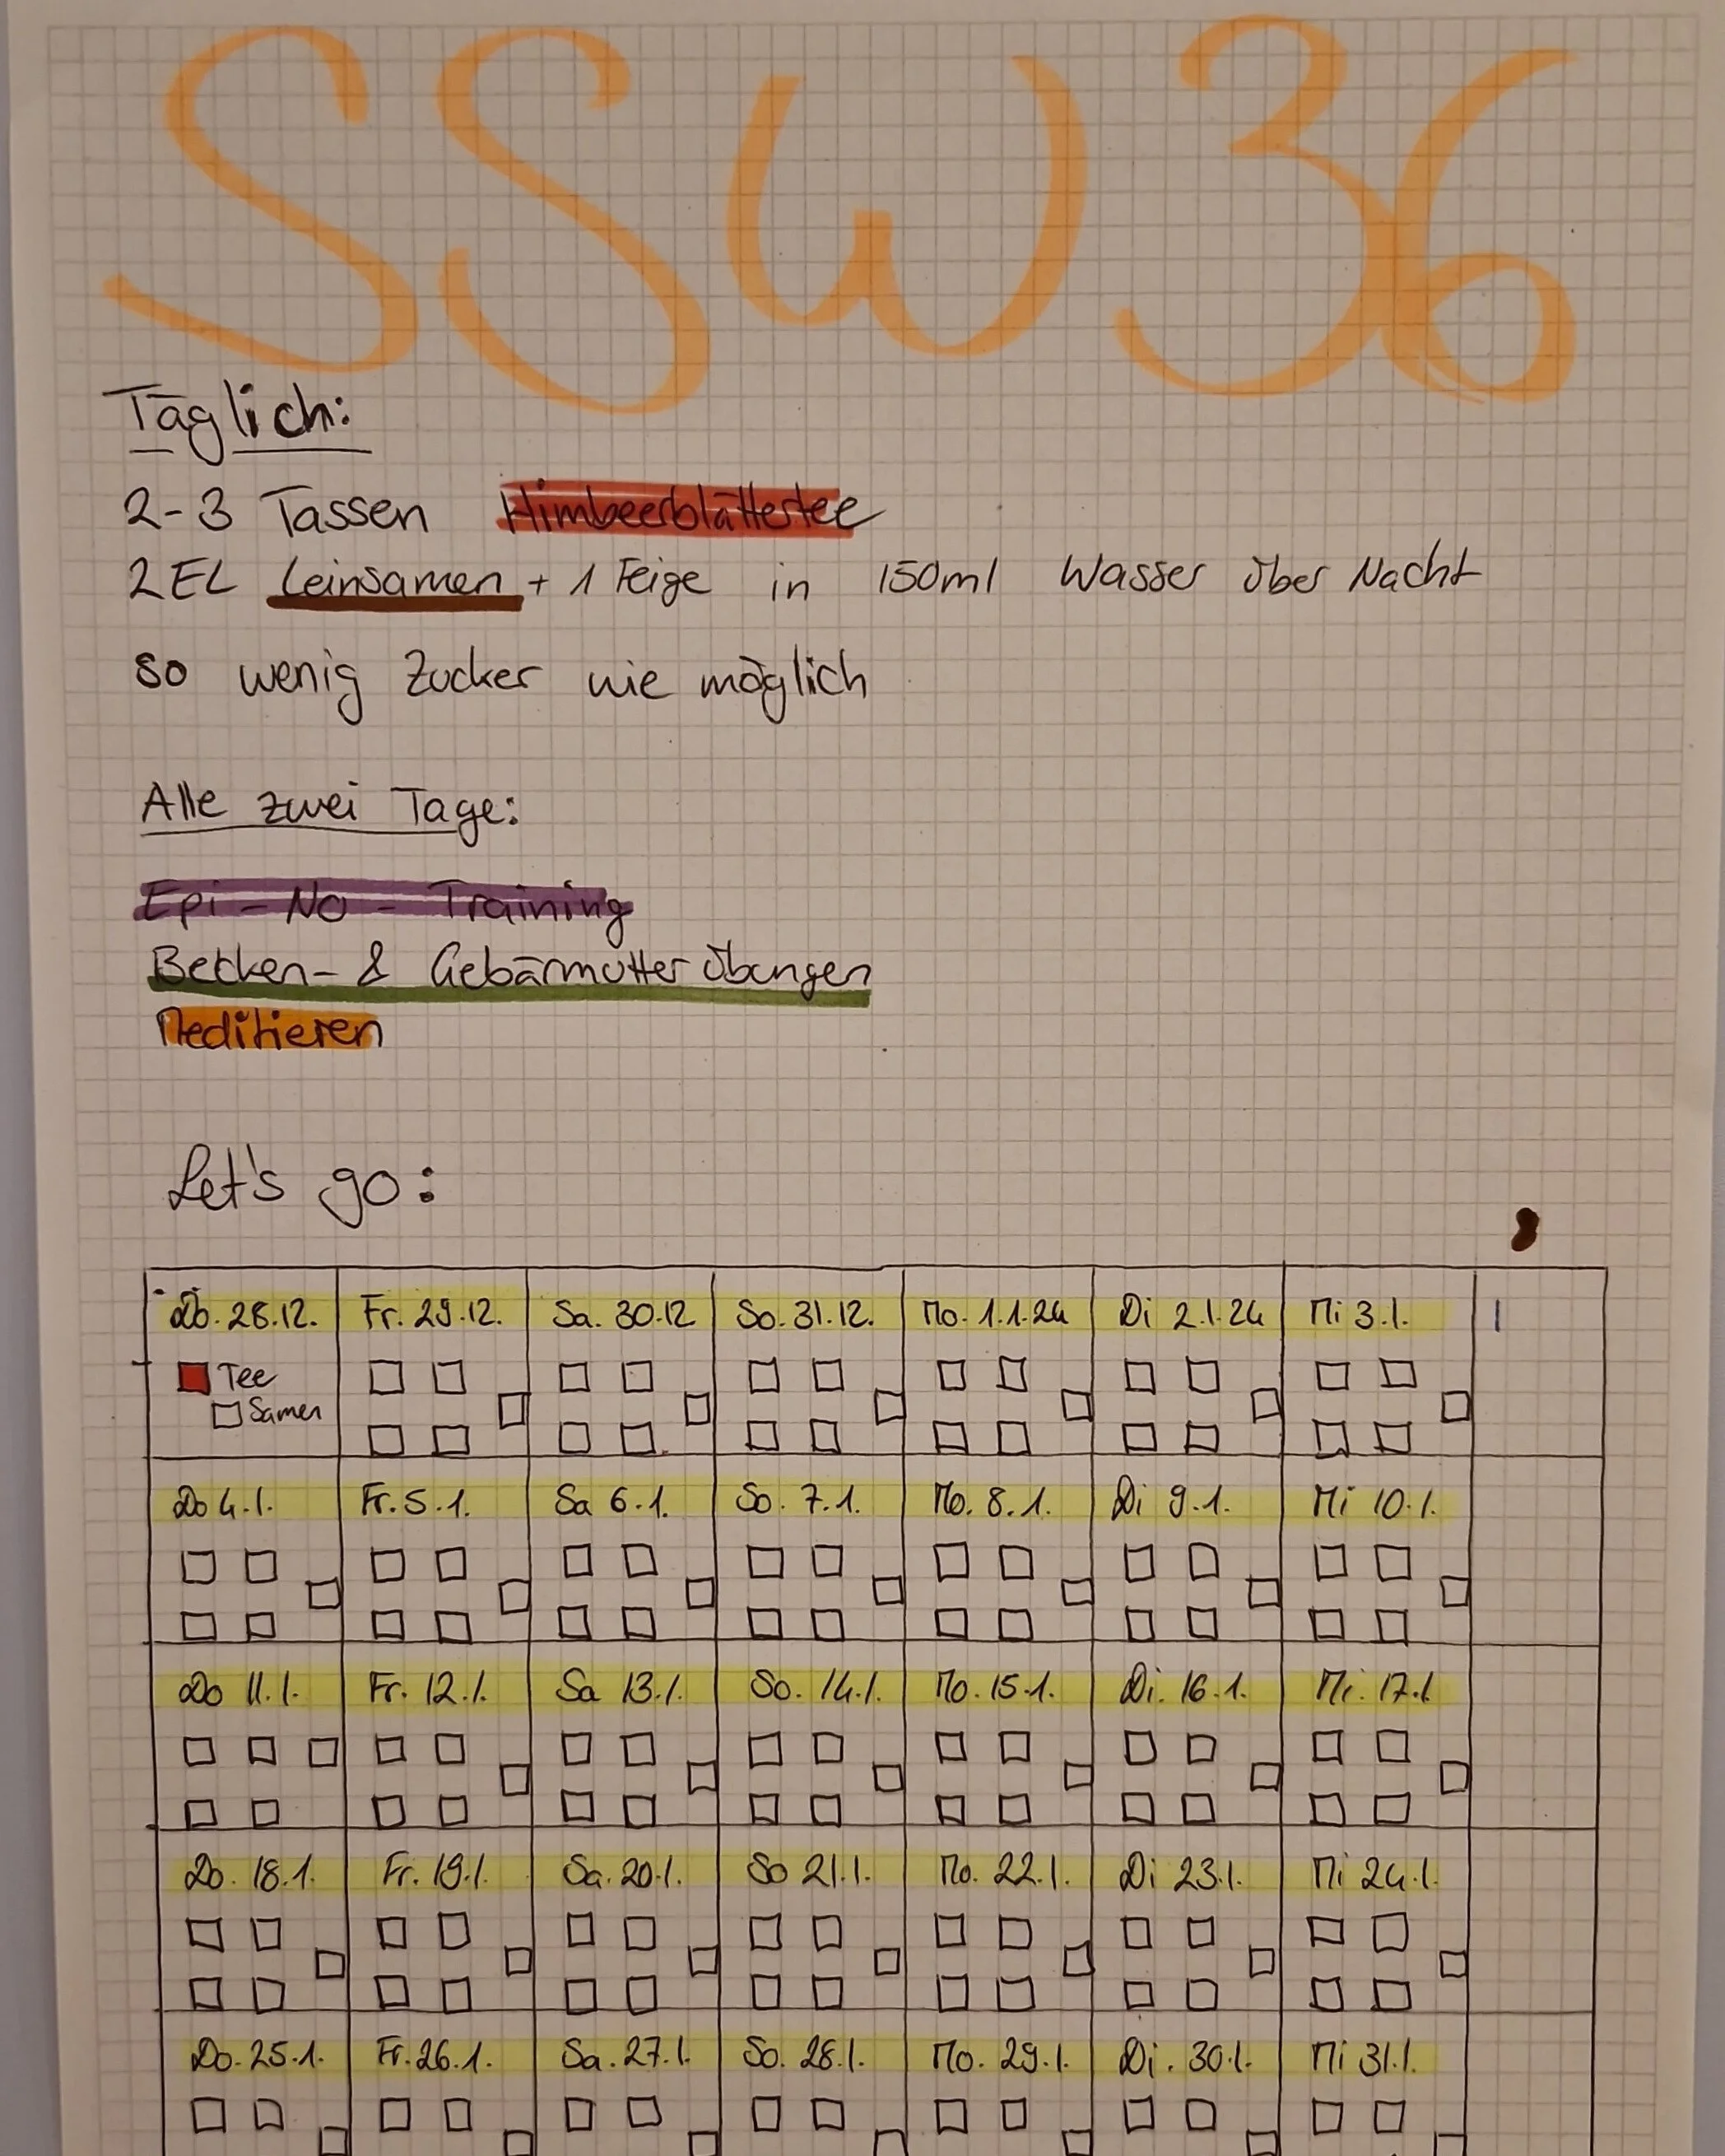 SSW 36
Täglich:
2-3 Tassen Himbeerblättertee
2EL Leinsamen + 1 Feige in 150ml Wasser über Nacht
so wenig Zucker wie möglich
Alle zwei Tage:
Epi-No-Training
Becken- & Gebärmutterübungen
Meditieren
Let's go:
Do. 28.12. Fr. 29.12. Sa. 30.12 So. 31.12. Mo. 1.1.24 Di 2.1.24 Mi 3.1.
Tee
Samen
Do 4.1. Fr. 5.1. Sa 6.1. So. 7.1. Mo. 8.1. Di 9.1. Mi 10.1.
Do 11.1. Fr. 12.1. Sa 13.1. So. 14.1. Mo. 15.1. Di. 16.1. Mi. 17.1
Do. 18.1. Fr. 19.1. Sa. 20.1. So 21.1. Mo. 22.1. Di 23.1. Mi 24.1.
Do. 25.1. Fr. 26.1. Sa. 27.1. So. 28.1. Mo. 29.1. Di. 30.1. Mi 31.1.